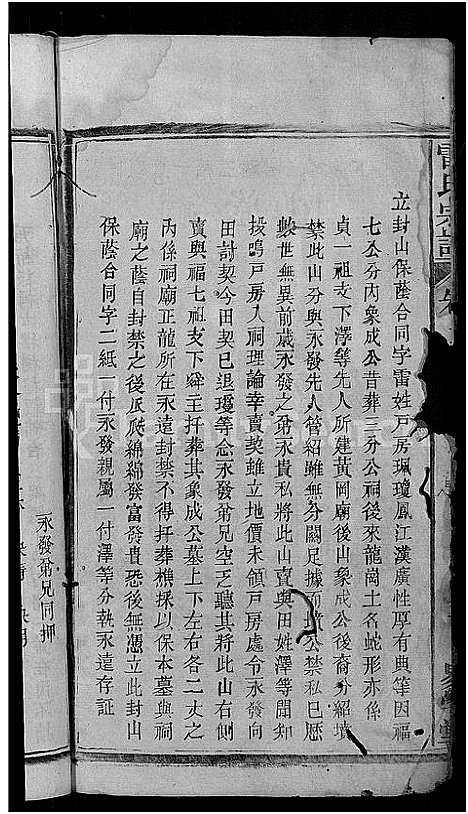 雷氏宗譜
立封山保蔭合同字雷姓戸房珮瓊鳳江漢廣性厚有典等因福
七公分內象成公昔葬三分公祠後來龍崗土名蛇形亦係
貞一祖支下澤等先人所建黃岡廟後山象成公後裔分紹墳
禁此山分與永發先人管紹雖無分關足據而公禁私巳歷
數世無異前歲永發之弟永貴私將此山賣與田姓澤等聞知
投鳴戸房人祠理論幸賣契雖立地價未領戸房處令永發向
田討契今田契巳退瓊等念永發弟兄空乏聽其將此山右側
賣與福七祖支下舜主扦葬其象成公墓上下左右各二丈之
內係祠廟正龍所在永遠封禁不得扦葬樵採以保本墓與祠
廟之蔭自封禁之後瓜瓞綿綿發富發貴恐後無憑立此封山
保蔭合同字二紙一付永發親屬一付澤等分執永遠存証
永發弟兄同押